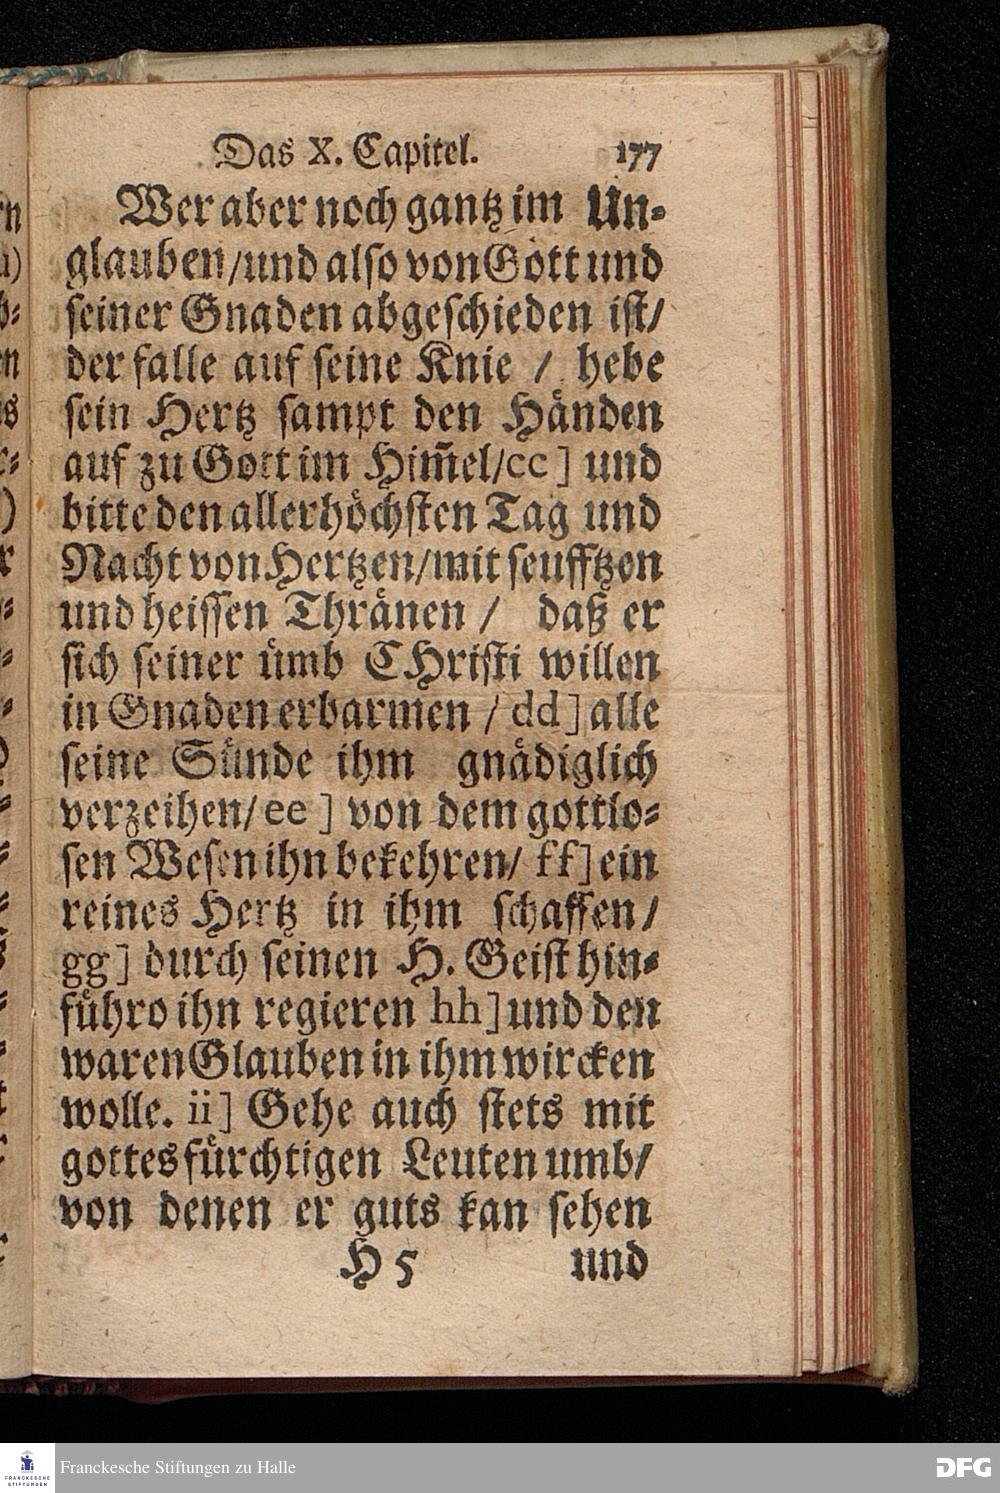 Das X. Capitel. 177
Wer aber noch gantz im Un-
glauben/und also von Gott und
seiner Gnaden abgeschieden ist/
der falle auf seine Knie / hebe
sein Hertz sampt den Händen
auf zu Gott im Him̃el/cc] und
bitte den allerhöchsten Tag und
Nacht von Hertzen/mit seufftzen
und heissen Thränen / daß er
sich seiner ümb CHristi willen
in Gnaden erbarmen / dd] alle
seine Sünde ihm gnädiglich
verzeihen/ee] von dem gottlo-
sen Wesen ihn bekehren/ ff] ein
reines Hertz in ihm schaffen/
gg] durch seinen H. Geist hin-
führo ihn regieren hh] und den
waren Glauben in ihm wircken
wolle. ii] Gehe auch stets mit
gottesfürchtigen Leuten umb/
von denen er guts kan sehen
H 5 und
FRANCKESCHE STIFTUNGEN
Franckesche Stiftungen zu Halle
DFG